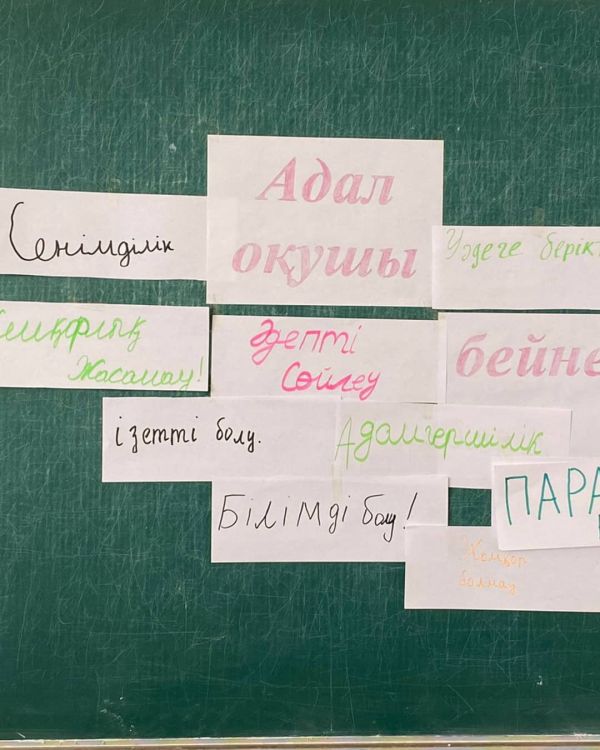 Адал
оқушы
Сенімділік
Уәдеге берік
Жасамау!
Әдепті
Сөйлеу
бейне
ізетті болу.
Адамгершілік
ПАРА
Білімді болу!
Жемқор
болмау